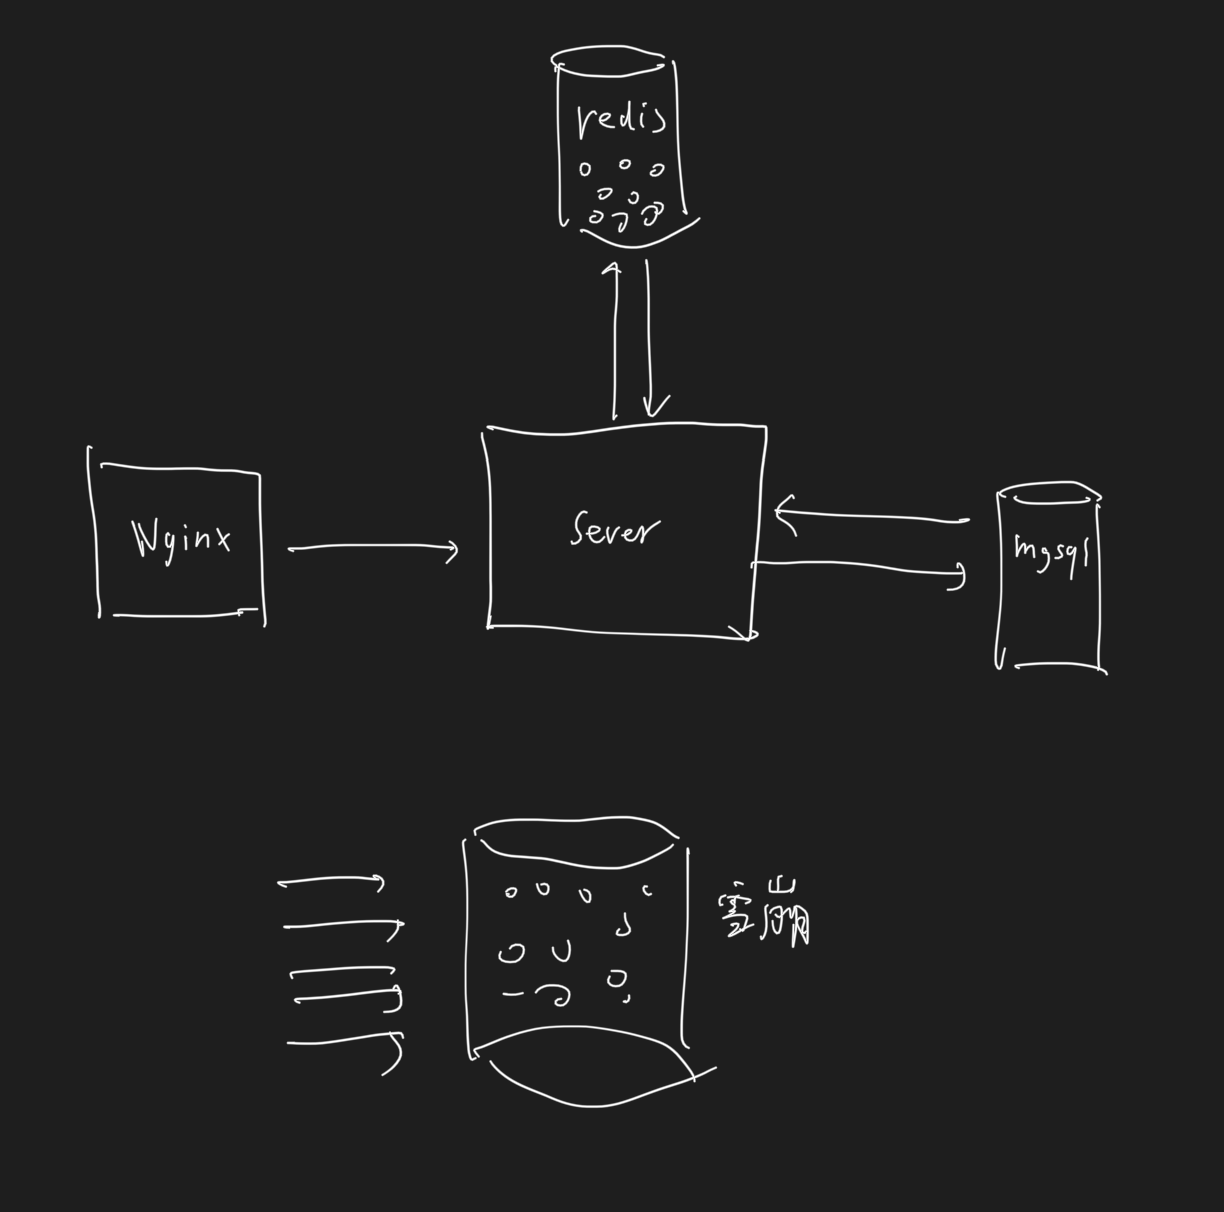 redis
Nginx
Sever
mysql
雪崩